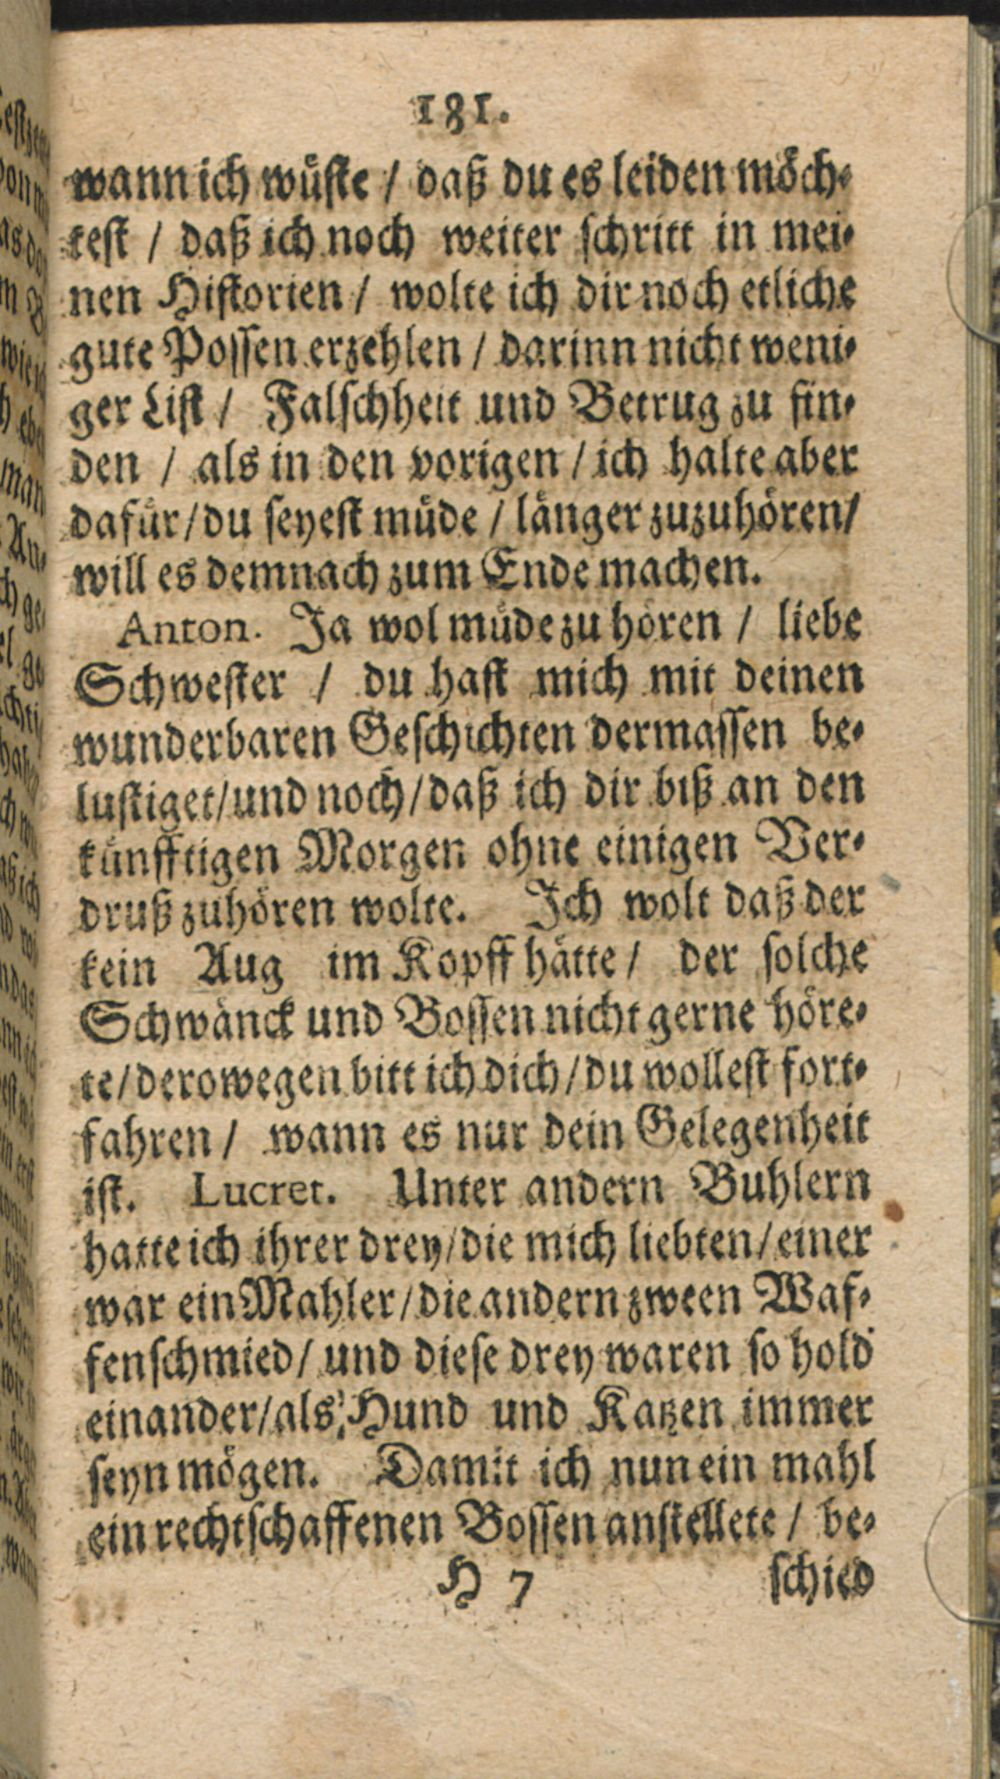 181.
wann ich wüste / daß du es leiden möch-
test / daß ich noch weiter schritt in mei-
nen Historien / wolte ich dir noch etliche
gute Possen erzehlen / darinn nicht weni-
ger List / Falschheit und Betrug zu fin-
den / als in den vorigen / ich halte aber
dafür / du seyest müde / länger zuzuhören /
will es demnach zum Ende machen.
Anton. Ja wol müde zu hören / liebe
Schwester / du hast mich mit deinen
wunderbaren Geschichten dermassen be-
lustiget / und noch / daß ich dir biß an den
künfftigen Morgen ohne einigen Ver-
druß zuhören wolte. Ich wolt daß der
kein Aug im Kopff hätte / der solche
Schwänck und Bossen nicht gerne höre-
te / derowegen bitt ich dich / du wollest fort-
fahren / wann es nur dein Gelegenheit
ist. Lucret. Unter andern Buhlern
hatte ich ihrer drey / die mich liebten / einer
war ein Mahler / die andern zween Waf-
fenschmied / und diese drey waren so hold
einander / als Hund und Katzen immer
seyn mögen. Damit ich nun ein mahl
ein rechtschaffenen Bossen anstellete / be-
H 7 schied